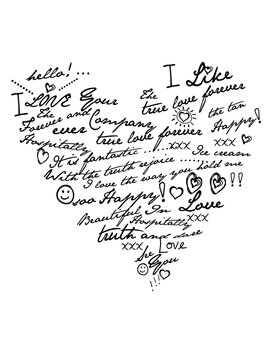 hello!....
I Like
I LOVE Your
The true love forever
The Forever and
ever Company
the tan
Hospitality true love forever Happy!
It is fantastic ........xxx.... Ice cream
With the truth rejoice ..... you hold me
I love the way
soo Happy! !!
Beautiful In Love
Hospitality xxx
truth and dare
xxx Love
So
You
!!!